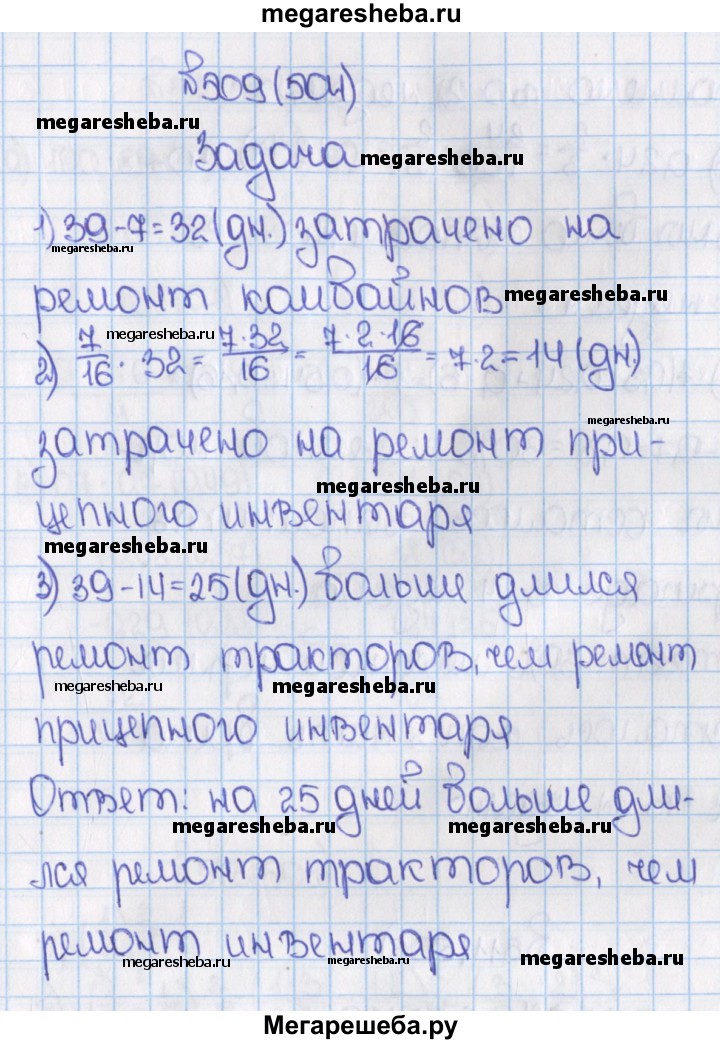 megaresheba.ru
№509(504)
megaresheba.ru
Задача megaresheba.ru
1) 39-7=32(дн.) затрачено на
megaresheba.ru
ремонт комбайнов megaresheba.ru
2) 7/16 · 32 = 7·32/16 = 7·2·16/16 = 7·2=14 (дн.)
megaresheba.ru
megaresheba.ru
затрачено на ремонт при-
megaresheba.ru
цепного инвентаря
megaresheba.ru
3) 39-14=25(дн.) больше длился
ремонт тракторов, чем ремонт
megaresheba.ru megaresheba.ru
прицепного инвентаря
Ответ: на 25 дней больше дли-
megaresheba.ru megaresheba.ru
лся ремонт тракторов, чем
ремонт инвентаря
megaresheba.ru megaresheba.ru megaresheba.ru
Мегарешеба.ру